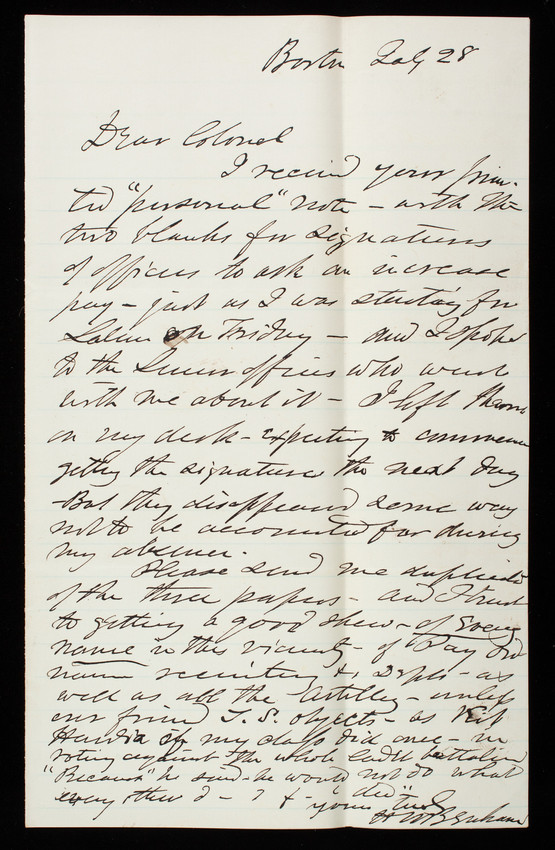 Boston July 28
Dear Colonel
I received your prin-
ted "personal" note - with the
two blanks for signatures
of officers to ask an increase
pay - just as I was starting for
Salem on Friday - and I spoke
to the officers who went
with me about it - I left them
on my desk - expecting to commence
getting the signatures the next day
- But they disappeared some way
not to be accounted for during
my absence.
Please send me duplicates
of the three papers - and I trust
to getting a good show - of every
name in this vicinity - of Pay
recruiting & Depts - as
well as all the Artillery - unless
our friend objects - as
of my class did once - in
voting against the whole cadet battalion
"Because" he said he would not do what
every other d - d + did"
yours truly
H W Benham